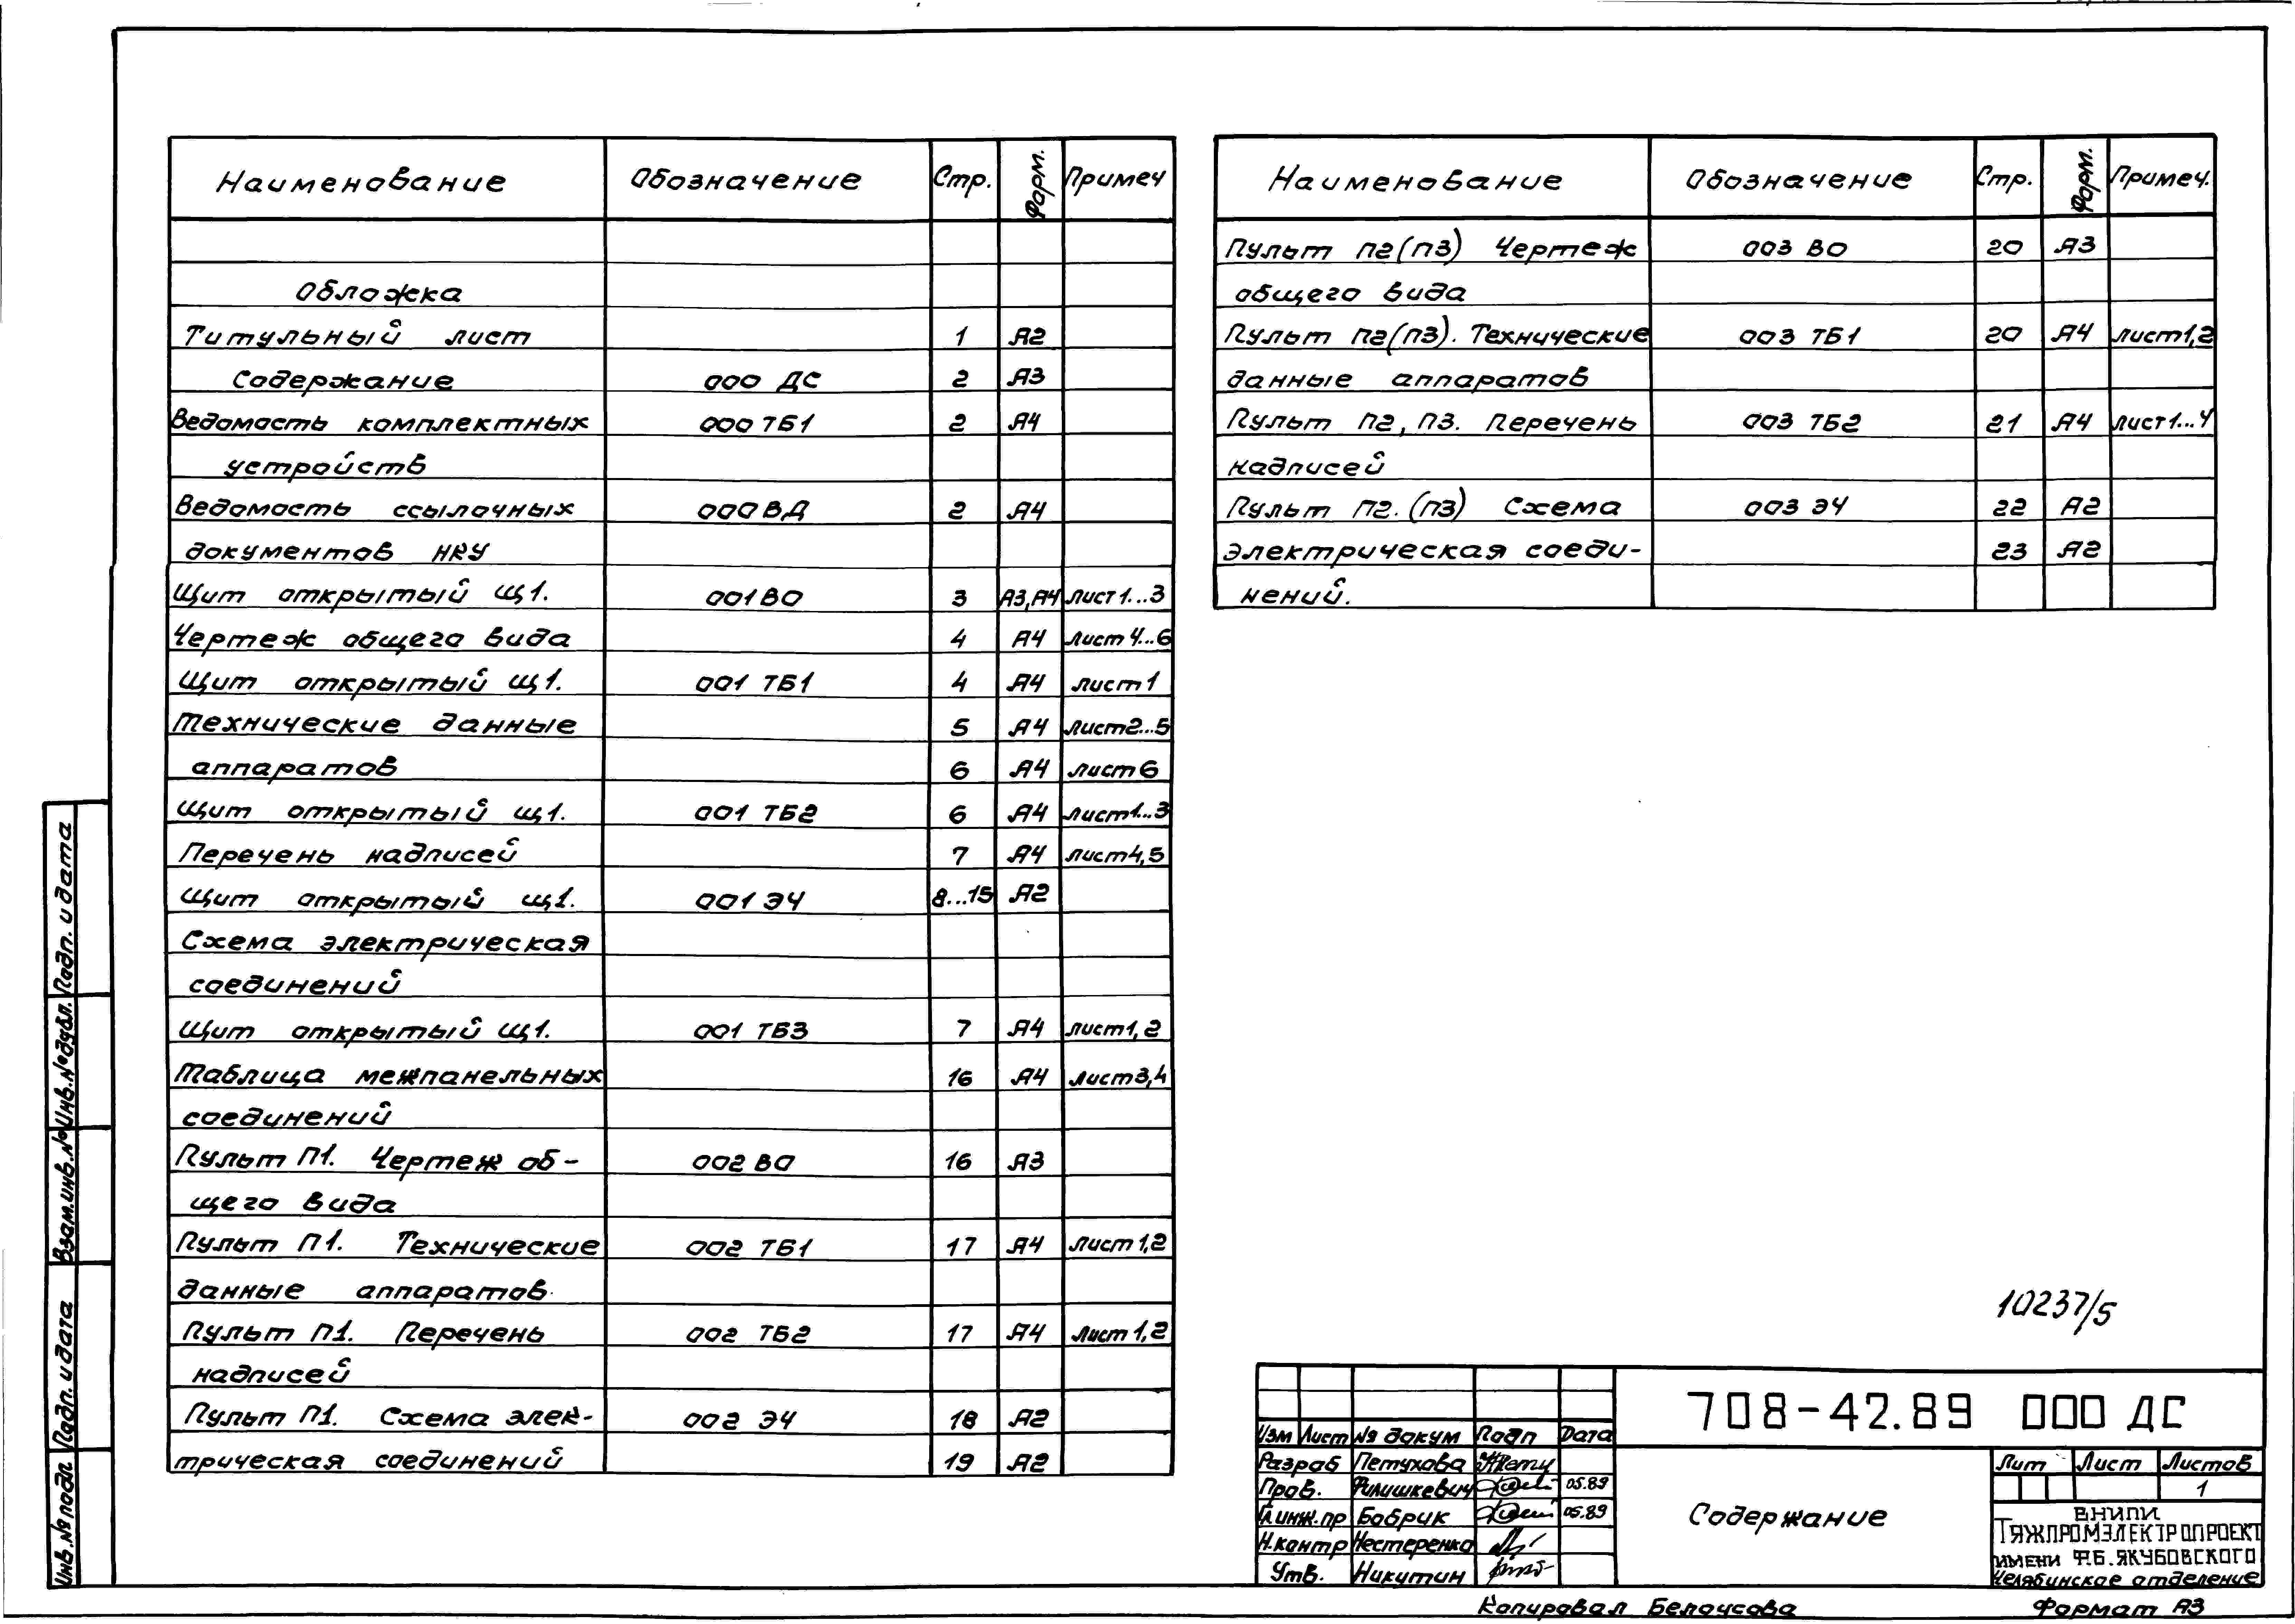 Наименование Обозначение Стр. Форм. Примеч
Обложка
Титульный лист 1 А2
Содержание 000 ДС 2 А3
Ведомость комплектных 000 ТБ1 2 А4
устройств
Ведомость ссылочных 000 ВД 2 А4
документов НКУ
Щит открытый Щ1. 001 ВО 3 А3,А4 лист 1...3
Чертеж общего вида 4 А4 лист 4...6
Щит открытый Щ1. 001 ТБ1 4 А4 лист 1
Технические данные 5 А4 лист 2...5
аппаратов 6 А4 лист 6
Щит открытый Щ1. 001 ТБ2 6 А4 лист 1...3
Перечень надписей 7 А4 лист 4,5
Щит открытый Щ1. 001 Э4 8...15 А2
Схема электрическая
соединений
Щит открытый Щ1. 001 ТБ3 7 А4 лист 1,2
Таблица межпанельных 16 А4 лист 3,4
соединений
Пульт П1. Чертеж об-
002 ВО 16 А3
щего вида
Пульт П1. Технические 002 ТБ1 17 А4 лист 1,2
данные аппаратов.
Пульт П1. Перечень 002 ТБ2 17 А4 лист 1,2
надписей
Пульт П1. Схема элек- 002 Э4 18 А2
трическая соединений 19 А2
Наименование Обозначение Стр. Форм. Примеч.
Пульт П2(П3) Чертеж 003 ВО 20 А3
общего вида
Пульт П2(П3). Технические 003 ТБ1 20 А4 лист 1,2
данные аппаратов
Пульт П2, П3. Перечень 003 ТБ2 21 А4 лист 1...4
надписей
Пульт П2.(П3) Схема 003 Э4 22 А2
электрическая соеди- 23 А2
нений.
10237/5
708-42.89 000 ДС
Изм Лист № докум Подп Дата
Разраб Петухова
Пров. Филишкевич 05.89
Гл инж. пр Бобрик 05.89
Н.контр Нестеренко
Утв. Никитин
Содержание
Лит Лист Листов
1
ВНИПИ
ТЯЖПРОМЭЛЕКТРОПРОЕКТ
ИМЕНИ Ф.Б. ЯКУБОВСКОГО
Челябинское отделение
Копировал Белоусова Формат А3
Инв. № подл Подп. и дата Взам. инв. № Инв. № дубл. Подп. и дата